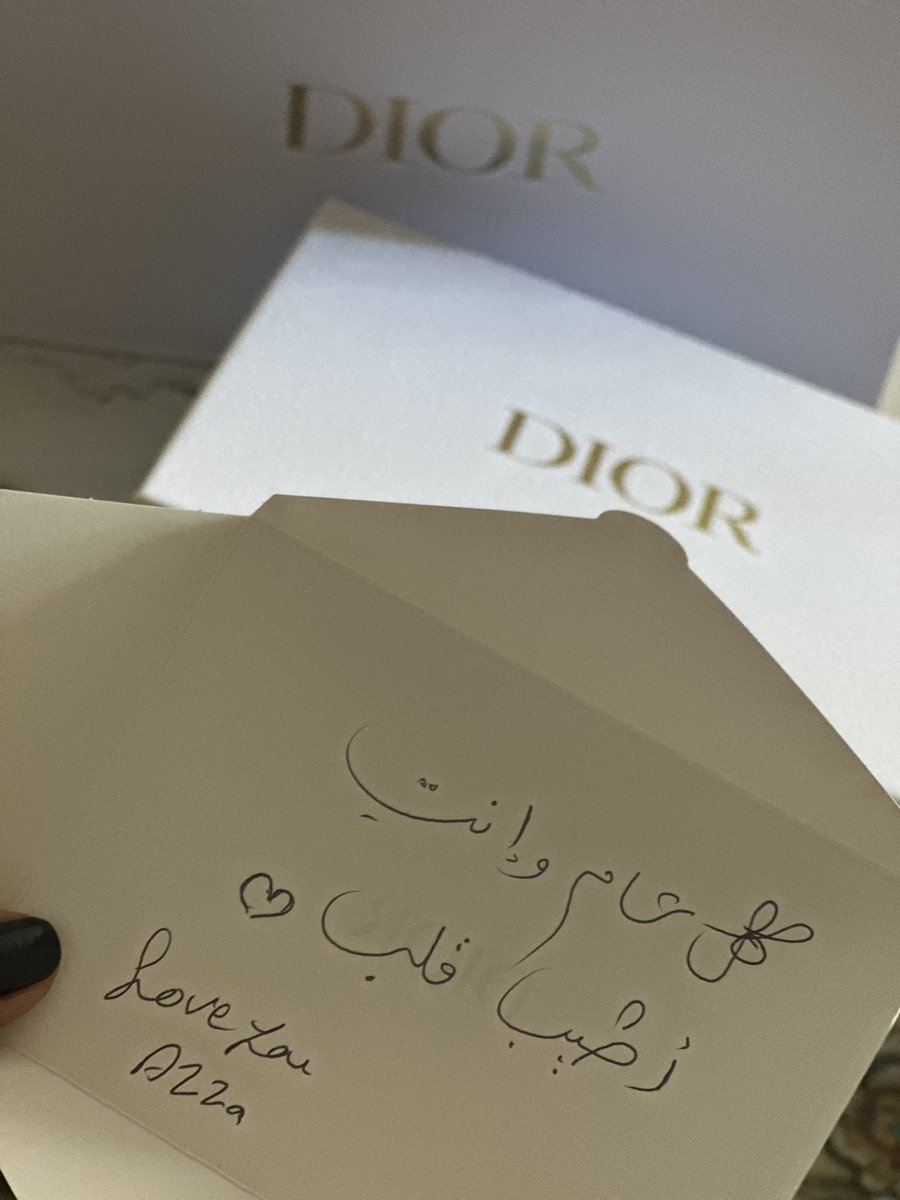 DIOR
DIOR
كل عام وإنتِ
أطيب قلب ♡
Love you
Azza